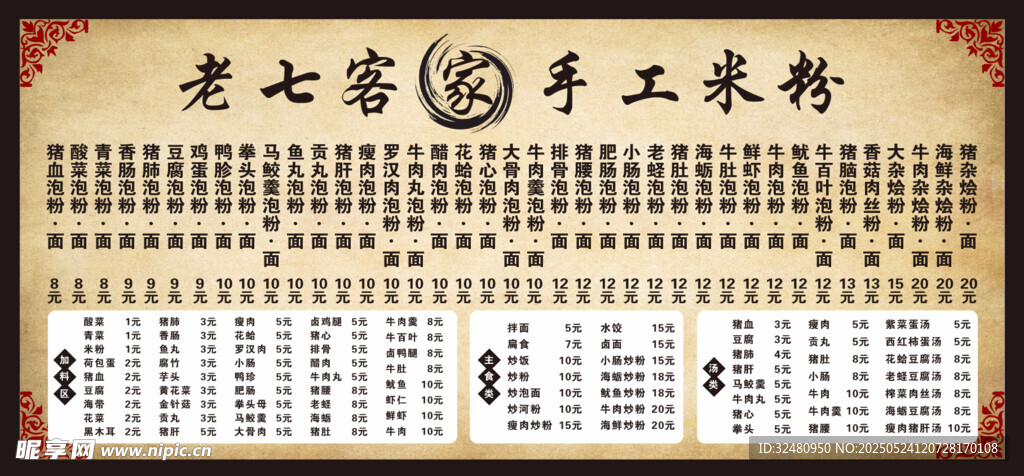 老七客家手工米粉
猪血泡粉·面 8元
酸菜泡粉·面 8元
青菜泡粉·面 8元
香肠泡粉·面 9元
猪肺泡粉·面 9元
豆腐泡粉·面 9元
鸡蛋泡粉·面 9元
鸭胗泡粉·面 10元
拳头泡粉·面 10元
马鲛羹泡粉·面 10元
鱼丸泡粉·面 10元
贡丸泡粉·面 10元
猪肝泡粉·面 10元
瘦肉泡粉·面 10元
罗汉肉泡粉·面 10元
牛肉丸泡粉·面 10元
醋肉泡粉·面 10元
花蛤泡粉·面 10元
猪心泡粉·面 10元
大骨肉泡粉·面 10元
牛肉羹泡粉·面 10元
排骨泡粉·面 12元
猪腰泡粉·面 12元
肥肠泡粉·面 12元
小肠泡粉·面 12元
老蛏泡粉·面 12元
猪肚泡粉·面 12元
海蛎泡粉·面 12元
牛肚泡粉·面 12元
鲜虾泡粉·面 12元
牛肉泡粉·面 12元
鱿鱼泡粉·面 12元
牛百叶泡粉·面 12元
猪脑泡粉·面 13元
香菇肉丝粉·面 13元
大杂烩粉·面 15元
牛肉杂烩粉·面 20元
海鲜杂烩粉·面 20元
猪杂烩粉·面 20元
加料区
酸菜 1元 猪肺 3元 瘦肉 5元 卤鸡腿 5元 牛肉羹 8元
青菜 1元 香肠 3元 花蛤 5元 猪心 5元 牛百叶 8元
米粉 1元 鱼丸 3元 罗汉肉 5元 排骨 5元 卤鸭腿 8元
荷包蛋 2元 腐竹 3元 小肠 5元 醋肉 5元 牛肚 8元
猪血 2元 芋头 3元 鸭珍 5元 牛肉丸 5元 鱿鱼 10元
豆腐 2元 黄花菜 3元 肥肠 5元 猪腰 8元 虾仁 10元
海带 2元 金针菇 3元 拳头母 5元 老蛏 8元 鲜虾 10元
花菜 2元 贡丸 3元 马鲛羹 5元 海蛎 8元 牛肉 10元
黑木耳 2元 猪肝 5元 大骨肉 5元 猪肚 8元
主食类
拌面 5元 水饺 15元
扁食 7元 卤面 15元
炒饭 10元 小肠炒粉 15元
炒粉 10元 海蛎炒粉 18元
炒泡面 10元 鱿鱼炒粉 18元
炒河粉 10元 牛肉炒粉 20元
瘦肉炒粉 15元 海鲜炒粉 20元
汤类
猪血 3元 瘦肉 5元 紫菜蛋汤 5元
豆腐 3元 贡丸 5元 西红柿蛋汤 5元
猪肺 4元 猪肚 8元 花蛤豆腐汤 8元
猪肝 5元 小肠 8元 老蛏豆腐汤 8元
马鲛羹 5元 牛肉 10元 榨菜肉丝汤 8元
牛肉丸 5元 牛肉羹 10元 海蛎豆腐汤 8元
猪心 5元 猪腰 10元 瘦肉猪肝汤 10元
拳头 5元
昵享网 www.nipic.cn
ID:32480950 NO:20250524120728170108